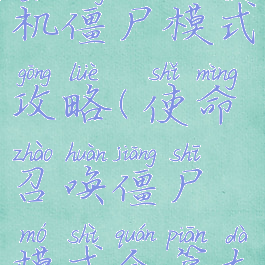 机僵尸模式
gōng lüè shǐ mìng
攻略(使命
zhào huàn jiāng shī
召唤僵尸
mó shì quán piān dà
模式全篇大